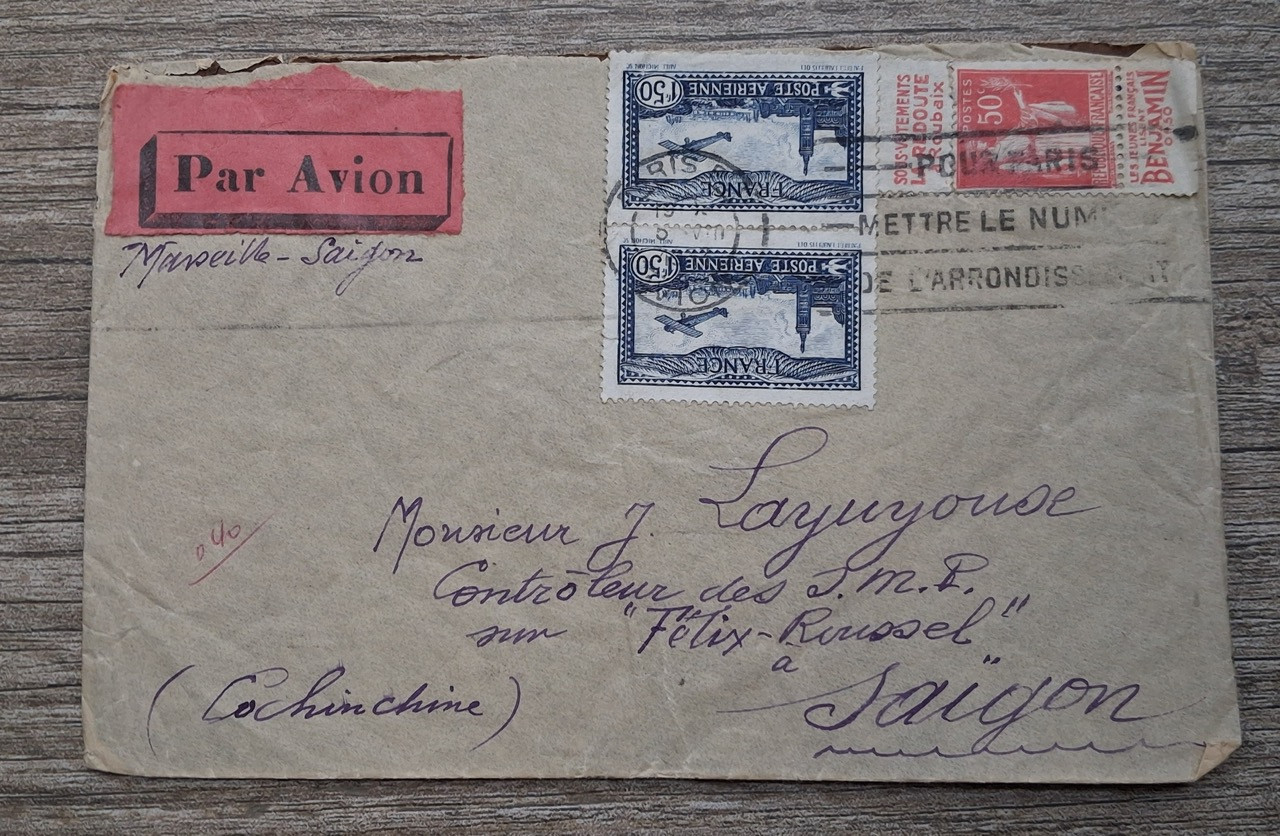 Par Avion
Marseille - Saigon
POSTE AERIENNE
1F50
FRANCE
POSTE AERIENNE
1F50
FRANCE
SOUS-VÊTEMENTS
LA REDOUTE
à Roubaix
POSTES
50c
REPUBLIQUE FRANÇAISE
LES JEUNES FRANÇAIS
LISENT
BENJAMIN
0F50
POUR PARIS
METTRE LE NUM
DE L'ARRONDISSEMENT
040
Monsieur J. Layuyouse
Contrôleur des S.M.P.
sur "Félix-Roussel"
à
Saïgon
(Cochinchine)